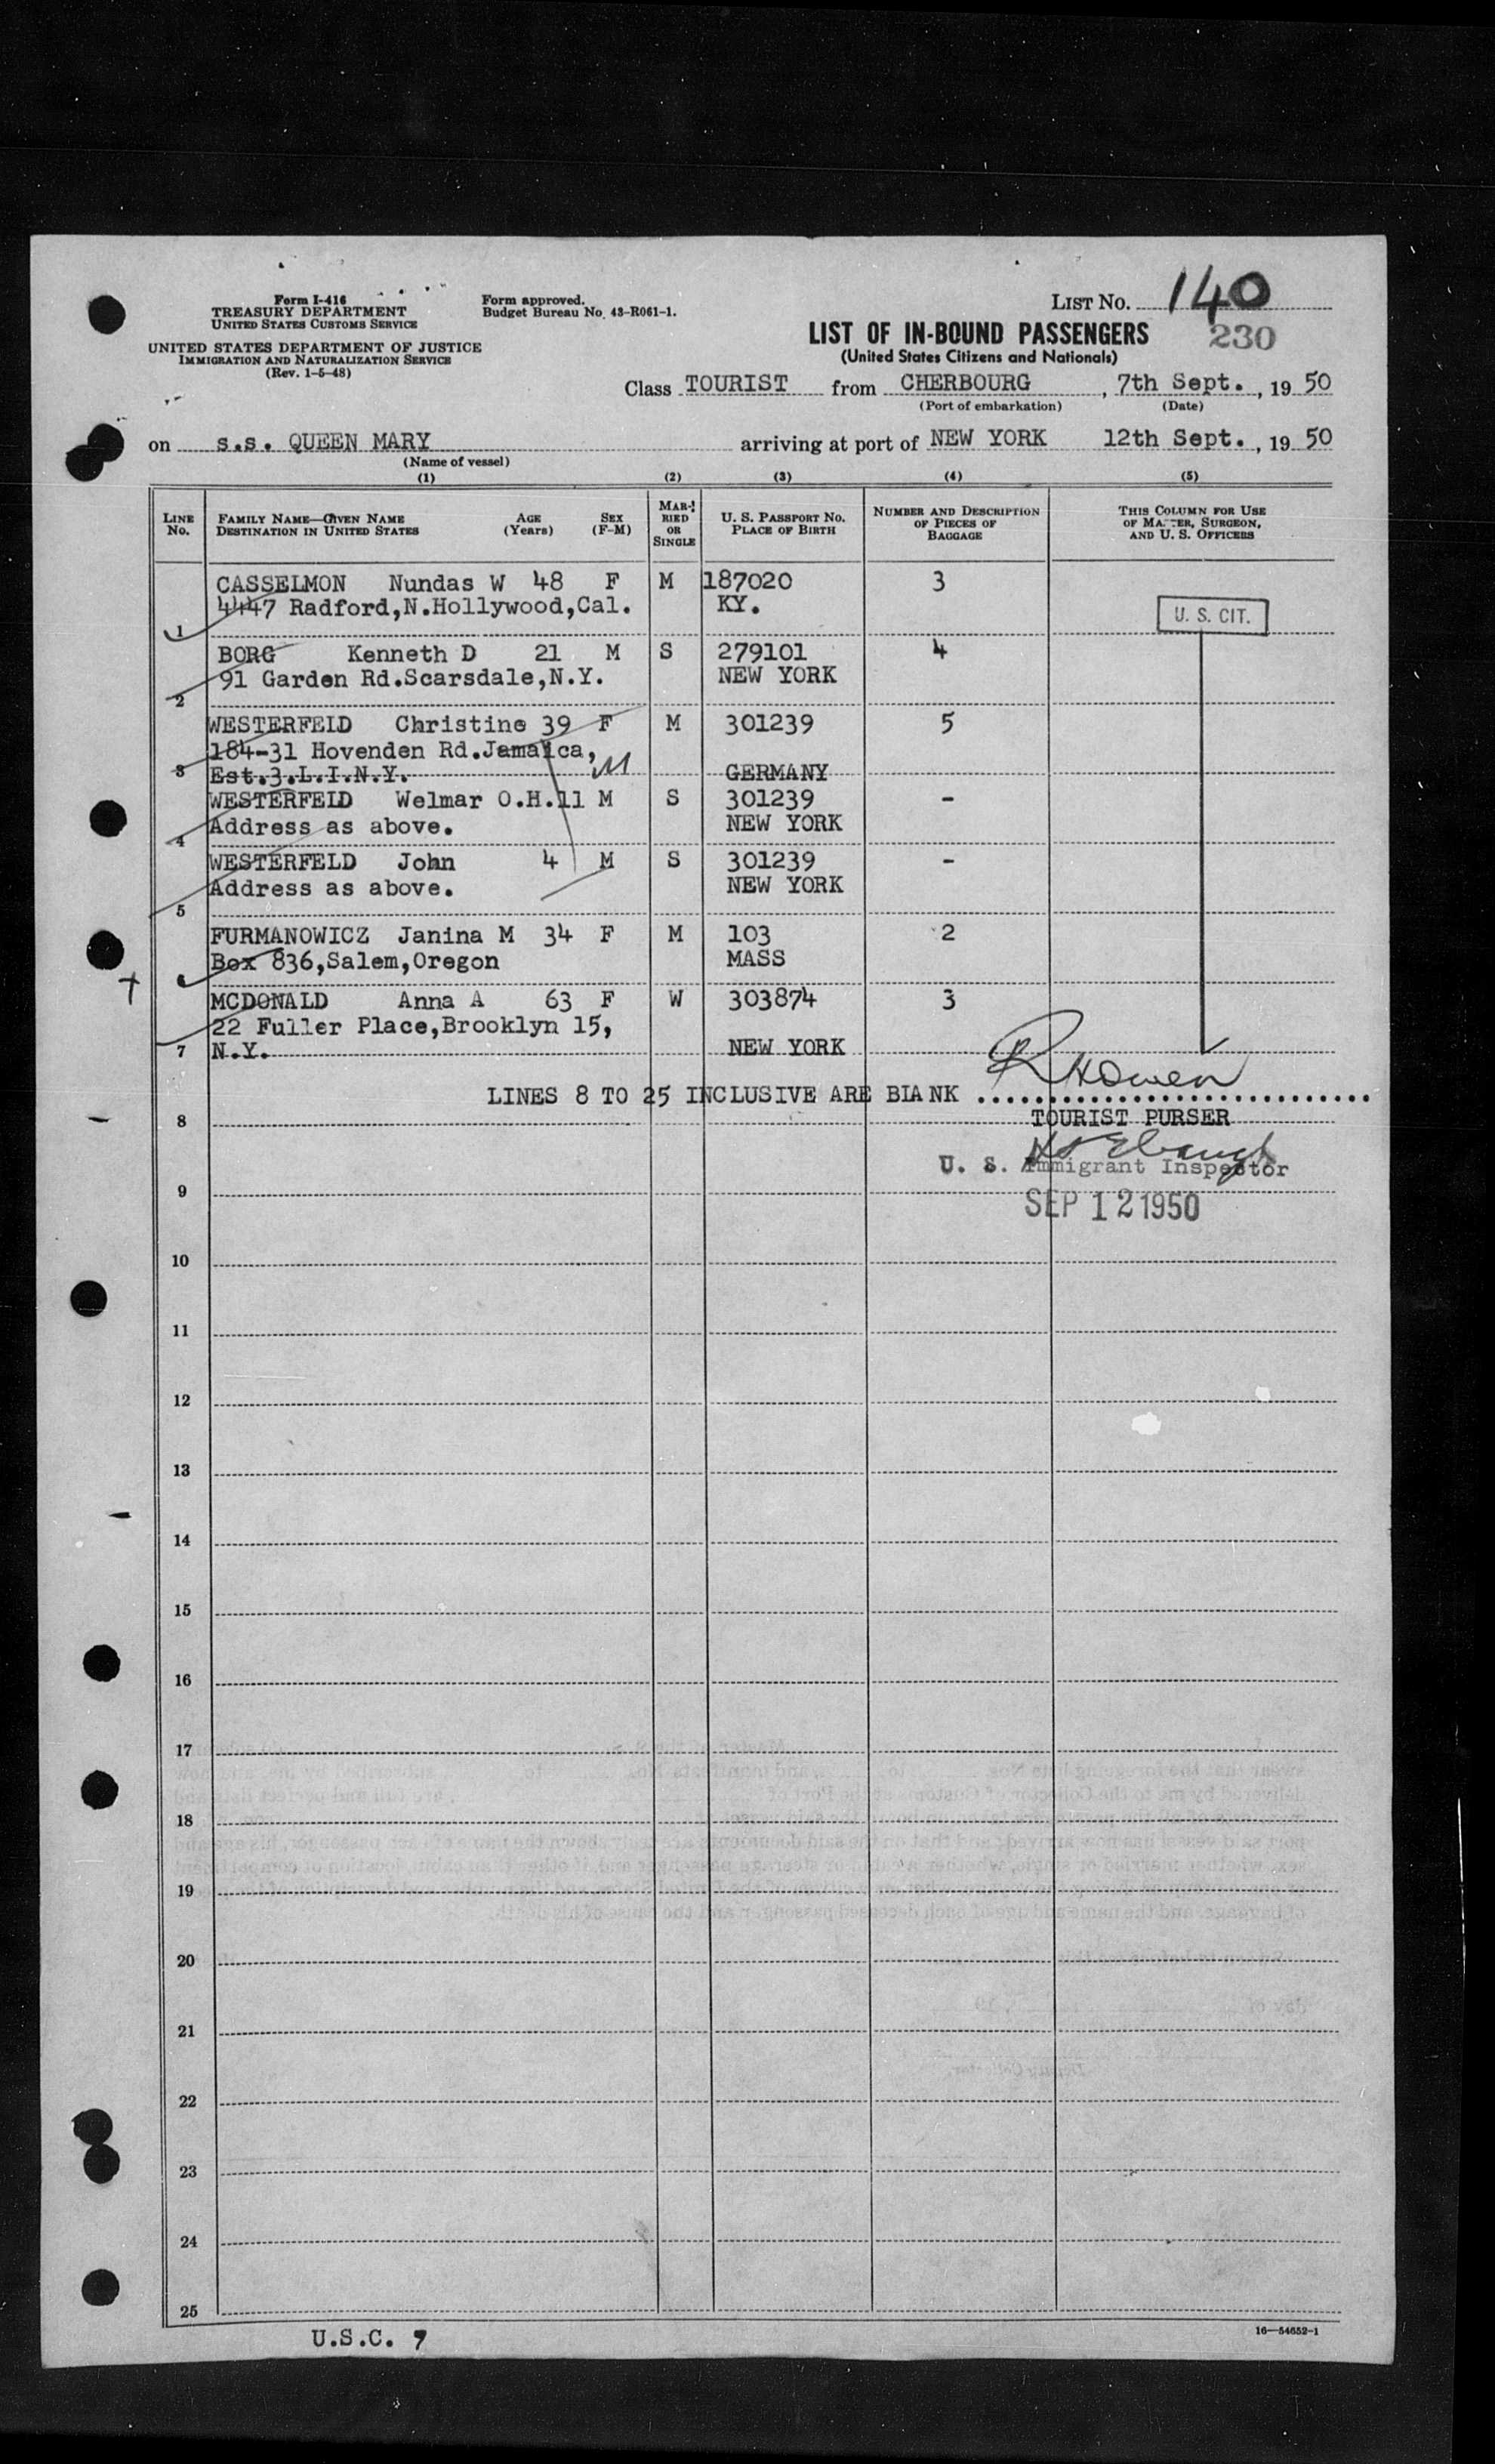 Form I-416
TREASURY DEPARTMENT
UNITED STATES CUSTOMS SERVICE
UNITED STATES DEPARTMENT OF JUSTICE
IMMIGRATION AND NATURALIZATION SERVICE
(Rev. 1-5-48)
Form approved.
Budget Bureau No. 43-R061-1.
LIST NO. 140
230
LIST OF IN-BOUND PASSENGERS
(United States Citizens and Nationals)
Class TOURIST from CHERBOURG, 7th Sept., 19 50
(Port of embarkation) (Date)
on s.s. QUEEN MARY arriving at port of NEW YORK 12th Sept., 19 50
(Name of vessel)
(1) (2) (3) (4) (5)
LINE No. FAMILY NAME—GIVEN NAME DESTINATION IN UNITED STATES AGE (Years) SEX (F-M) MARRIED OR SINGLE U. S. PASSPORT No. PLACE OF BIRTH NUMBER AND DESCRIPTION OF PIECES OF BAGGAGE THIS COLUMN FOR USE OF MASTER, SURGEON, AND U. S. OFFICERS
CASSELMON Nundas W 48 F M 187020 3
4447 Radford,N.Hollywood,Cal. KY. U. S. CIT.
1
BORG Kenneth D 21 M S 279101 4
91 Garden Rd.Scarsdale,N.Y. NEW YORK
2
WESTERFEID Christine 39 F M 301239 5
184-31 Hovenden Rd.Jamaica,
3 Est.3.L.I.N.Y. M GERMANY
WESTERFEID Welmar O.H.11 M S 301239 -
Address as above. NEW YORK
4
WESTERFELD John 4 M S 301239 -
Address as above. NEW YORK
5
FURMANOWICZ Janina M 34 F M 103 2
Box 836,Salem,Oregon MASS
6
MCDONALD Anna A 63 F W 303874 3
22 Fuller Place,Brooklyn 15,
7 N.Y. NEW YORK
LINES 8 TO 25 INCLUSIVE ARE BIANK
8 TOURIST PURSER
U. S. Immigrant Inspector
9
SEP 12 1950
10
11
12
13
14
15
16
17
18
19
20
21
22
23
24
25
U.S.C. 7
16—54652-1